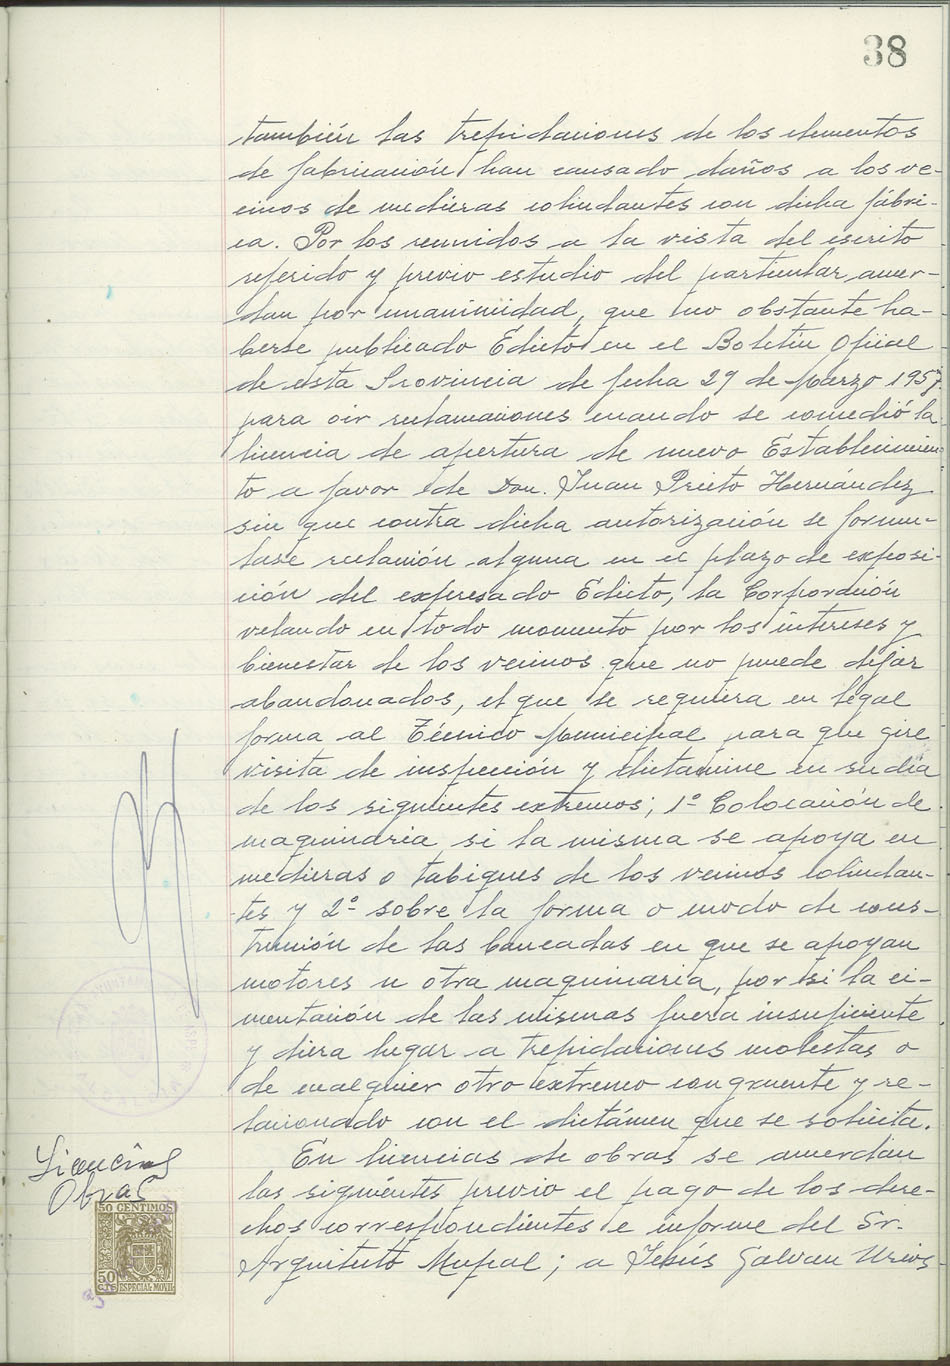 38
también las trepidaciones de los elementos
de fabricación han causado daños a los ve-
cinos de medieras colindantes con dicha fábri-
ca. Por los reunidos a la vista del escrito
referido y previo estudio del particular acuer-
dan por unanimidad, que no obstante ha-
berse publicado Edicto en el Boletín Oficial
de esta Provincia de fecha 29 de Marzo 1957
para oir reclamaciones cuando se concedió la
licencia de apertura de nuevo Establecimien-
to a favor de Don. Juan Prieto Hernández
sin que contra dicha autorización se formu-
lase reclamación alguna en el plazo de exposi-
ción del expresado Edicto, la Corporación
velando en todo momento por los intereses y
bienestar de los vecinos que no puede dejar
abandonados, el que se requiera en legal
forma al Técnico Municipal para que gire
visita de inspección y dictamine en su día
de los siguientes extremos; 1º Colocación de
maquinaria si la misma se apoya en
medieras o tabiques de los vecinos colindan-
tes y 2º sobre la forma o modo de cons-
trucción de las bancadas en que se apoyan
motores u otra maquinaria, por si la ci-
mentación de las mismas fuera insuficiente
y diera lugar a trepidaciones molestas o
de cualquier otro extremo congruente y re-
lacionado con el dictámen que se solicita.
Licencias
Obras
En licencias de obras se acuerdan
las siguientes previo el pago de los dere-
chos correspondientes e informe del Sr.
Arquitecto Mupal; a Jesús Galvan Urios
50 CENTIMOS
50
CTS
ESPECIAL MOVIL